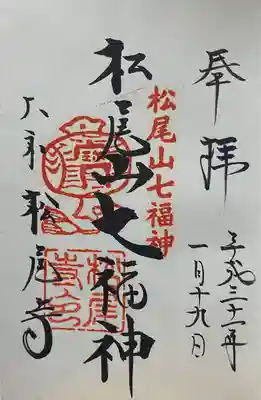 奉拝
平成三十一年
一月十九日
松尾山七福神
松尾山七福神
大和松尾寺